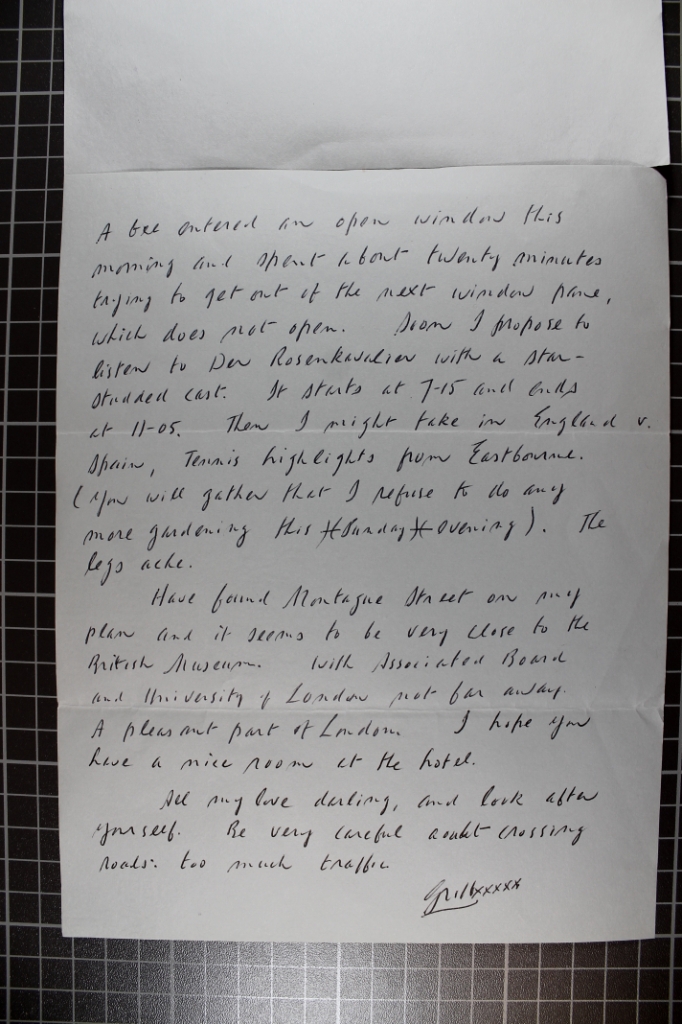 A bee entered an open window this
morning and spent about twenty minutes
trying to get out of the next window pane,
which does not open. Soon I propose to
listen to Der Rosenkavalier with a star-
studded cast. It starts at 7-15 and ends
at 11-05. Then I might take in England v.
Spain, Tennis highlights from Eastbourne.
(You will gather that I refuse to do any
more gardening this (Sunday) evening). The
legs ache.
Have found Montague Street on my
plan and it seems to be very close to the
British Museum. With Associated Board
and University of London not far away.
A pleasant part of London. I hope you
have a nice room at the hotel.
All my love darling, and look after
yourself. Be very careful about crossing
roads: too much traffic.
xxxxx